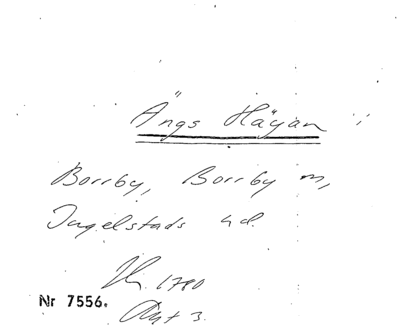 Ängs Häjan
Borrby, Borrby m,
Ingelstads hd.
1780
Nr 7556.
Akt 3.